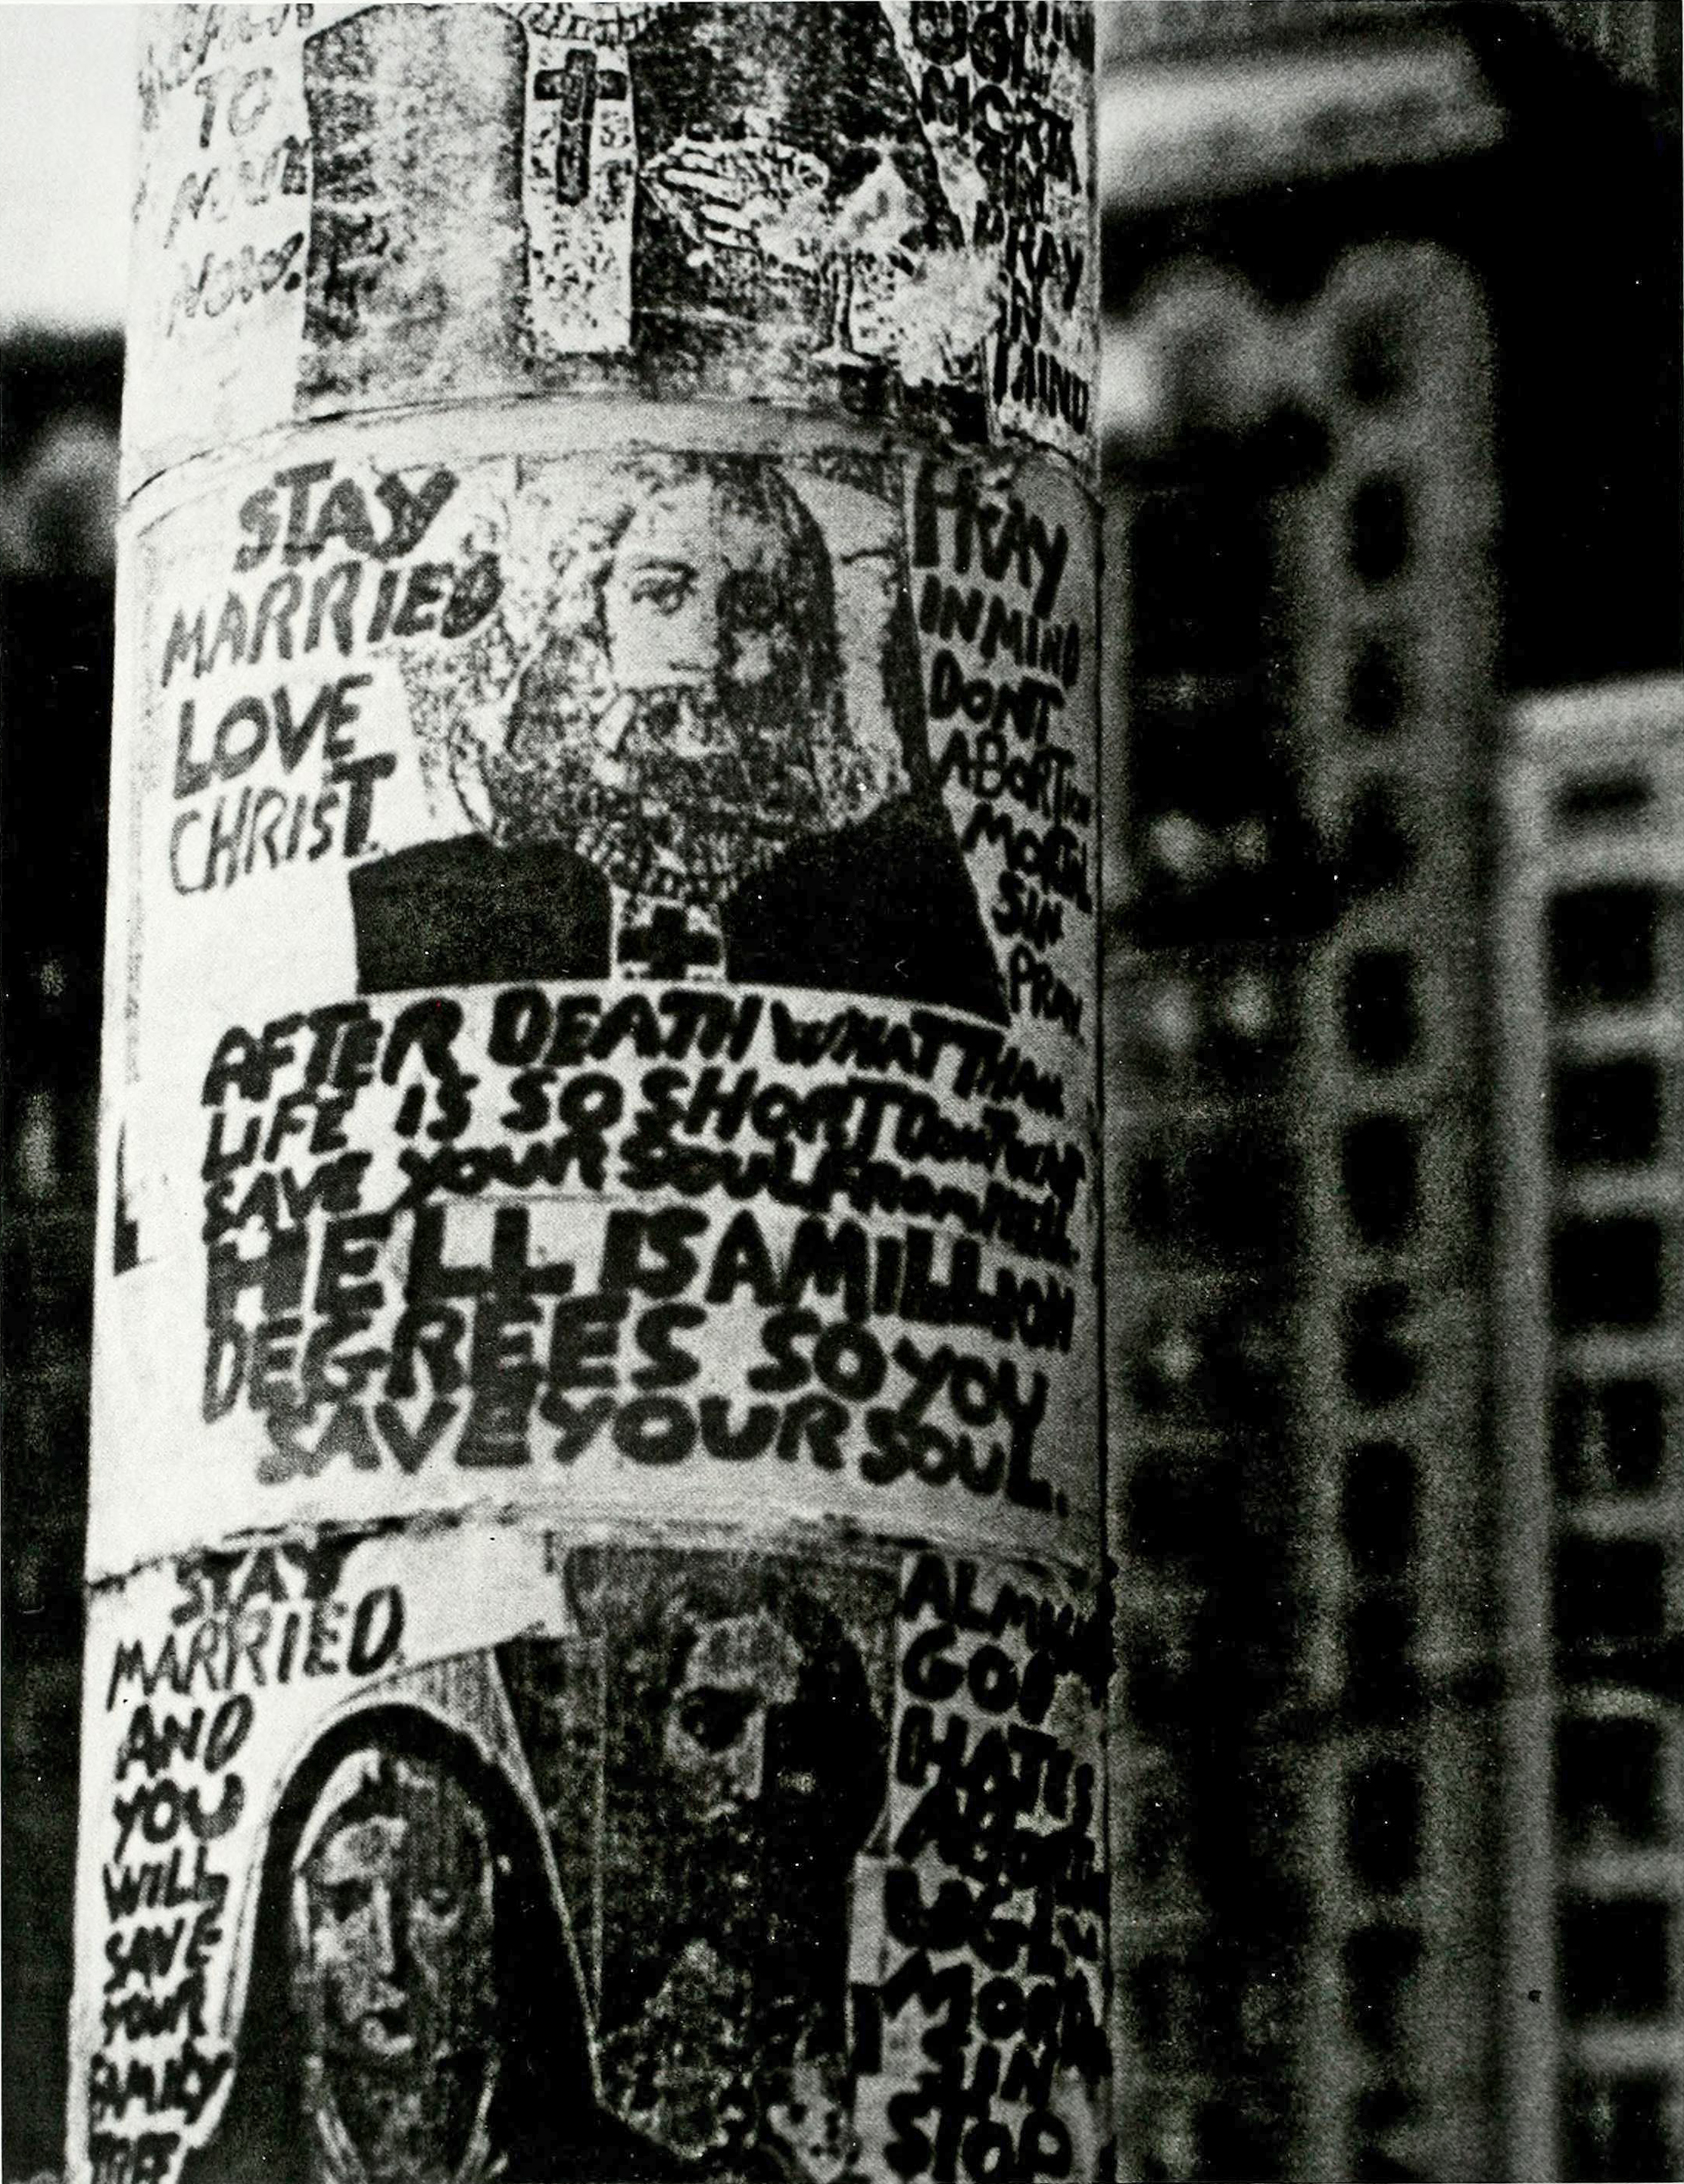 TO
YOUR
NOW.
UGLY
MORTA
SIN
PRAY
IN
MIND
STAY
MARRIED
LOVE
CHRIST.
PRAY
IN MIND
DONT
ABORTION
MORTAL
SIN
PRAY
AFTER DEATH WHAT THAN
LIFE IS SO SHORT DONT WAIT
SAVE YOUR SOUL FROM HELL.
HELL IS A MILLION
DEGREES SO YOU
SAVE YOUR SOUL.
STAY
MARRIED.
AND
YOU
WILL
SAVE
YOUR
FAMILY
ALMIGH
GOD
HATES
ABORTION
UGLY
MORTA
SIN
STOP